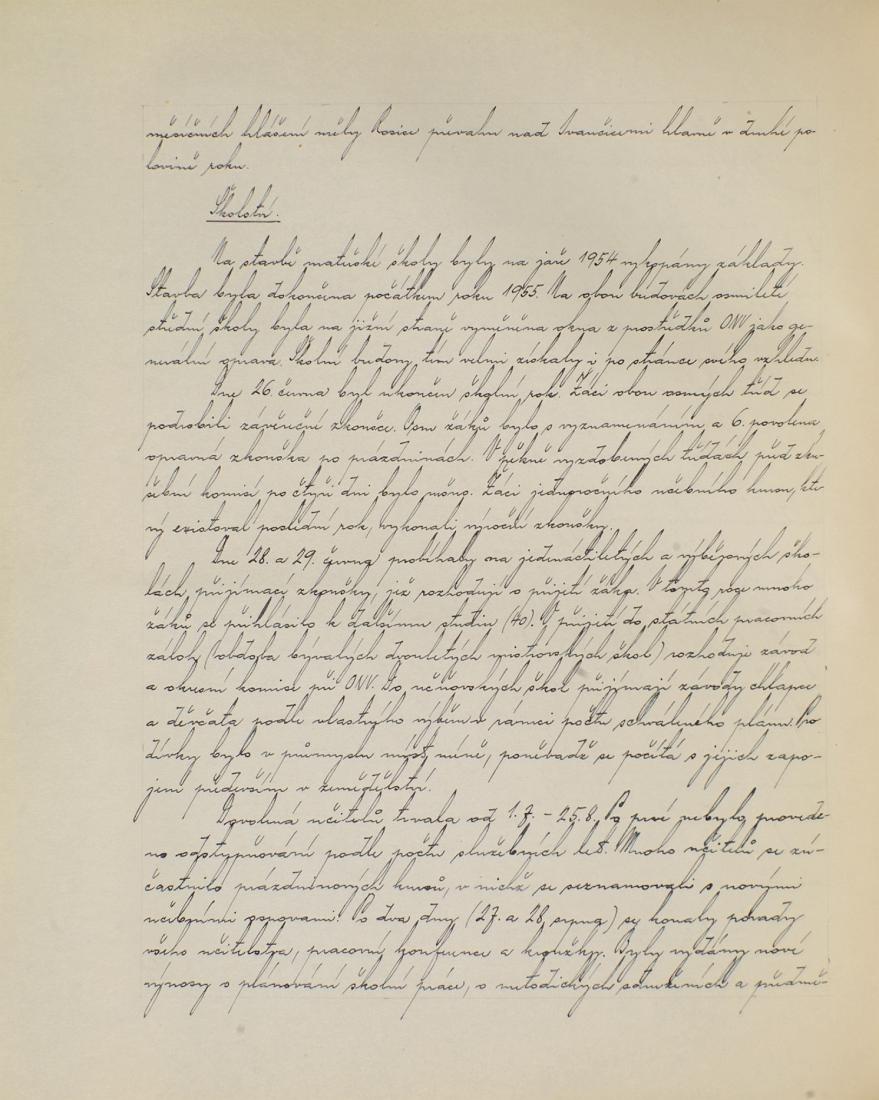 měsíčních hlášení měly Rosice převahu nad Ivančicemi hlavně v druhé po-
lovině roku.
Školství.
Na stavbě mateřské školy byly na jaře 1954 vykopány základy.
Stavba byla dokončena počátkem roku 1955. Na obou budovách osmileté
střední školy byla na jižní straně vyměněna okna z prostředků ONV jako ge-
nerální oprava. Školní budovy tím velmi získaly i po stránce svého vzhledu.
Dne 26. června byl ukončen školní rok. Žáci obou osmých tříd se
podrobili závěrečné zkoušce. Osm žáků bylo s vyznamenáním a 6. povolena
opravná zkouška po prázdninách. V pěkně vyzdobených třídách před zku-
šební komisí po čtyři dni bylo rušno. Žáci jednoročního učebního kursu, kte-
rý existoval poslední rok, vykonali výroční zkoušky.
Dne 28. a 29. června probíhaly na jedenáctiletých a výběrových ško-
lách přijímací zkoušky, jež rozhodují o přijetí žáka. V tomto roce mnoho
žáků se přihlásilo k dalšímu studiu (40). O přijetí do státních pracovních
záloh (obdoba bývalých dvouletých mistrovských škol) rozhoduje závod
a okresní komise při ONV. Do učňovských škol přijímají závody chlapce
a děvčata podle vlastního výběru v rámci počtu schváleného plánu. Pro
dívky bylo v průmyslu míst méně, poněvadž se počítá s jejich zapo-
jením především v zemědělství.
Dovolená učitelů trvala od 1.7. - 25.8. Po prvé nebylo provede-
no odstupňování podle počtu služebních let. Mnoho učitelů se zú-
častnilo prázdninových kursů, v nichž se seznamovali s novými
učebními osnovami. Po dva dny (27. a 28. srpna) se konaly porady
všeho učitelstva, pracovní konference a kroužky. Byly vydány nové
výnosy o plánování školní práce, o metodických sdruženích a předmě-